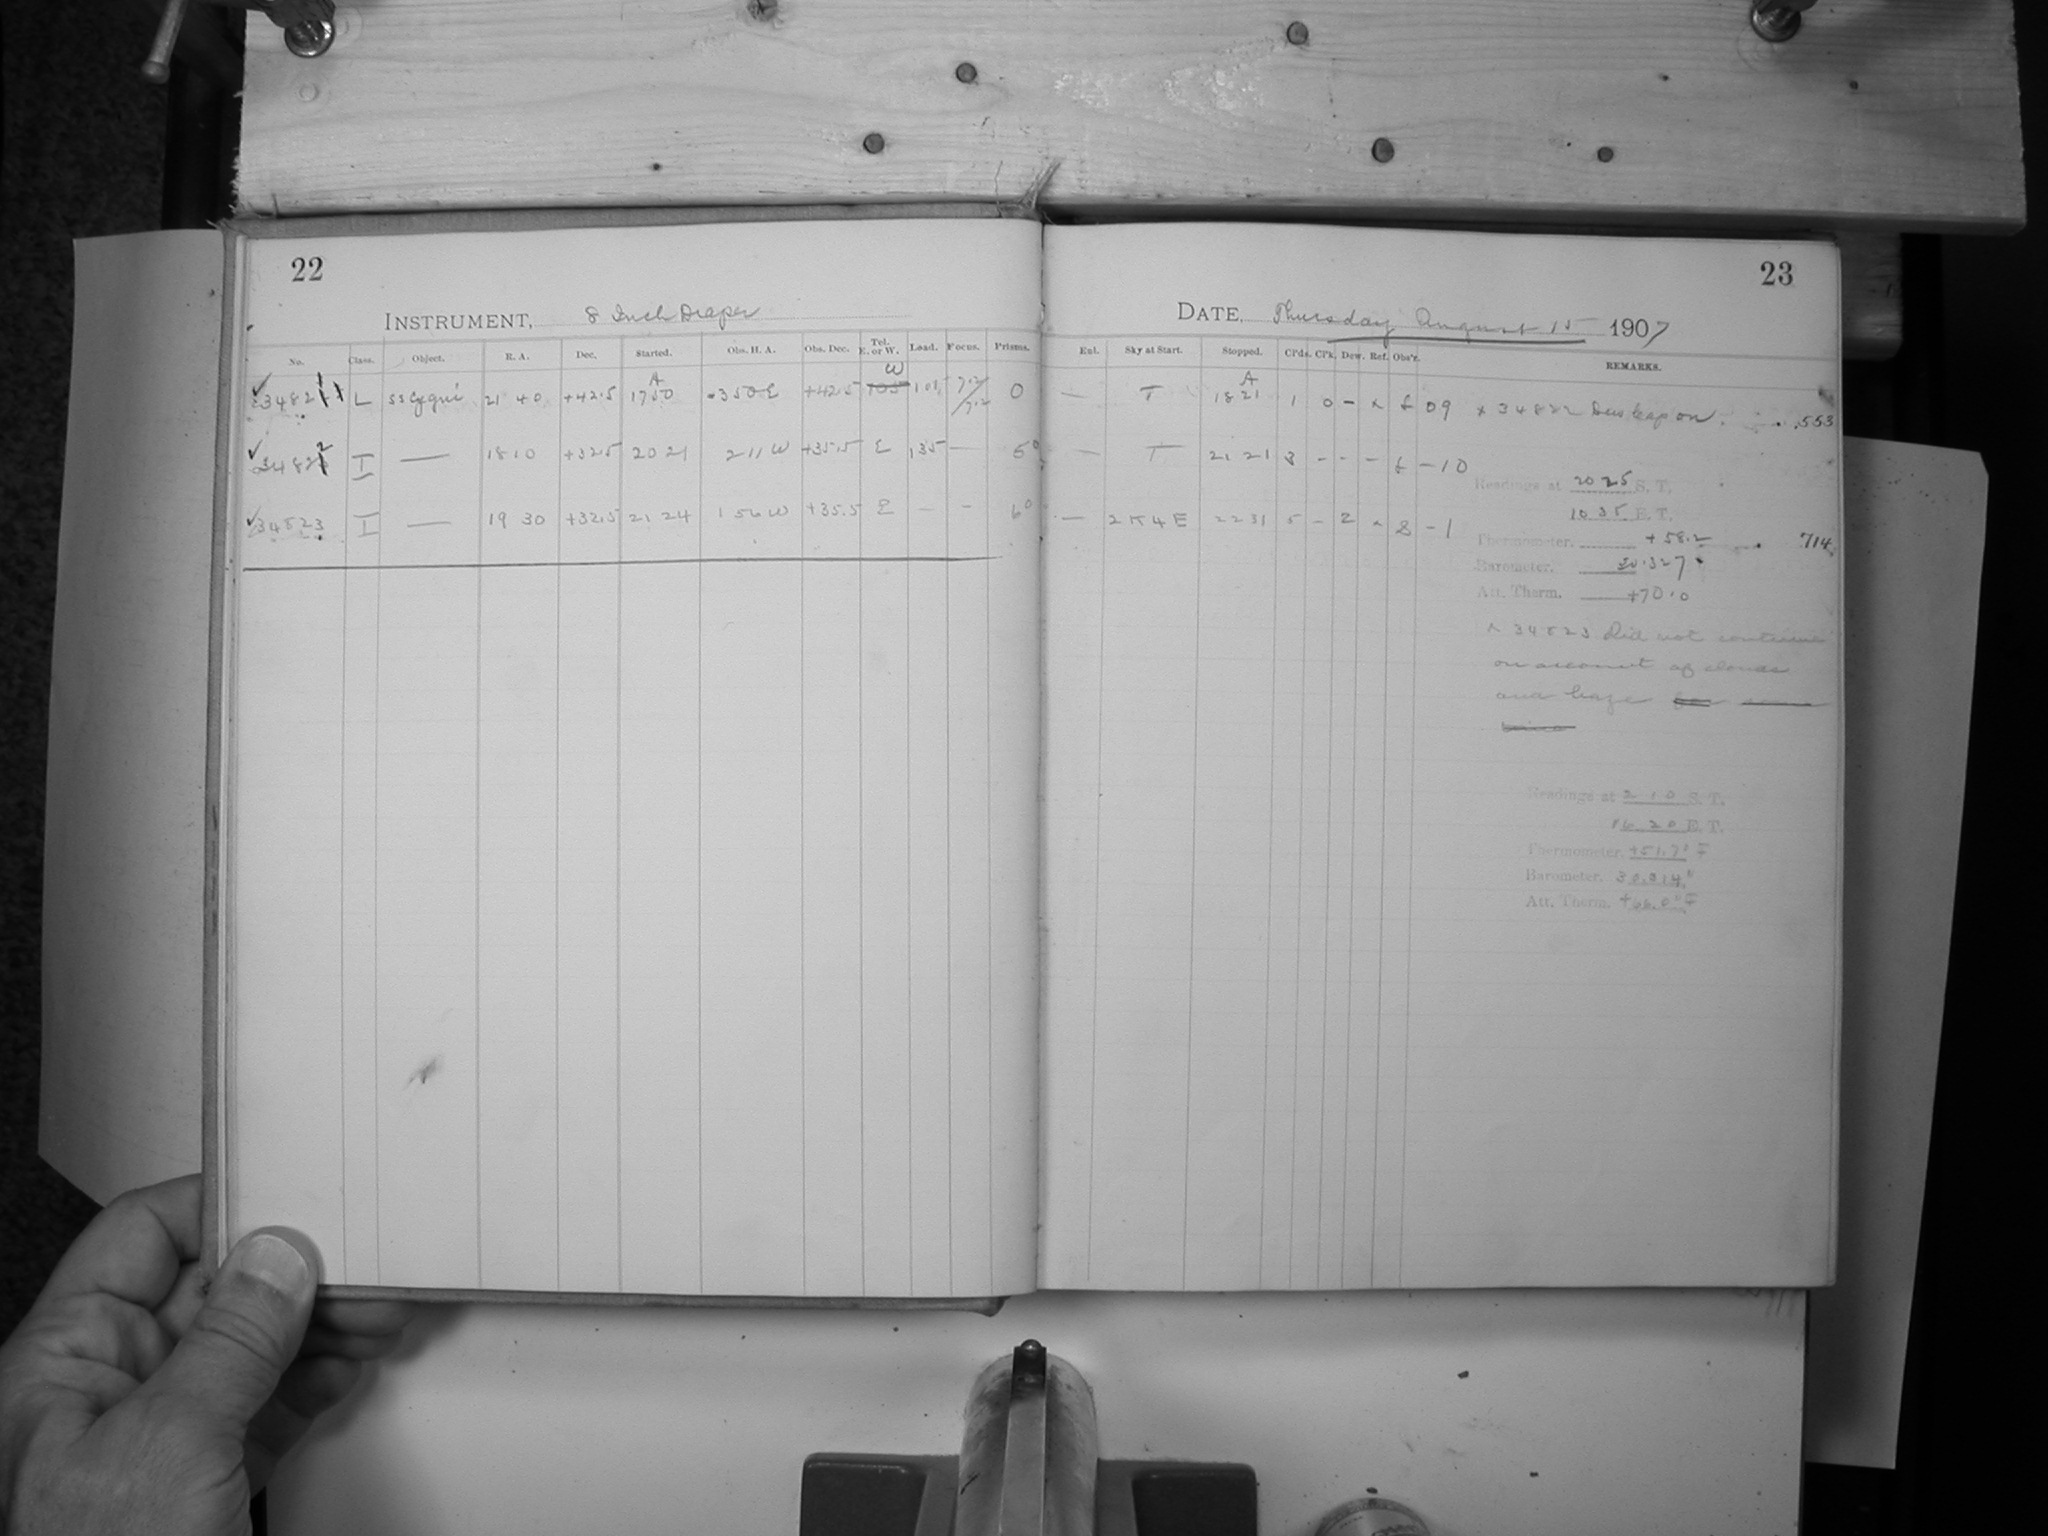 22
INSTRUMENT, 8 Inch Draper
No. Class. Object. R. A. Dec. Started. Obs. H. A. Obs. Dec. Tel. E. or W. Load. Focus. Prisms.
34821 L SS Cygni 21 40 +42.5 A 1750 350 E +42.5 W 0
34822 I — 18 10 +32.5 20 21 2 11 W +35.5 E 135 — 5°
34823 I — 19 30 +32.5 21 24 1 54 W +35.5 E — — 6°
23
DATE, Thursday August 15 1907
Exl. Sky at Start. Stopped. Cl'ds. Cl'k. Dew. Ref. Obs'r. REMARKS.
— T A 1821 1 0 – x 09 x 34822 Dew cap on .553
— T 21 21 3 – – – – 10
Readings at 20 25 S. T.
— 2 K 4 E 22 31 5 – 2 x 8 – 1
10 35 E. T.
Thermometer. +58.2 714
Barometer. 30.327
Att. Therm. +70.0
x 34823 Did not continue
on account of clouds
and haze
Readings at 2 10 S. T.
16 20 E. T.
Thermometer. +51.7° F
Barometer. 30.014"
Att. Therm. +66.0° F